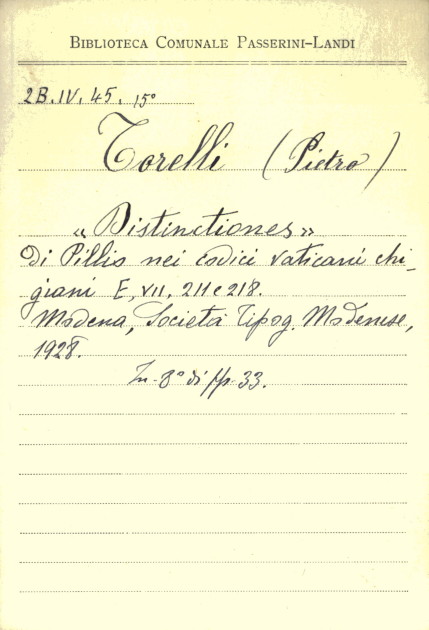 BIBLIOTECA COMUNALE PASSERINI-LANDI
2B.IV.45. 15º
Torelli (Pietro)
«Distinctiones»
di Pillio nei codici vaticani chi-
giani E, VII, 211 e 218.
Modena, Società Tipog. Modenese,
1928.
In-8º di pp. 33.